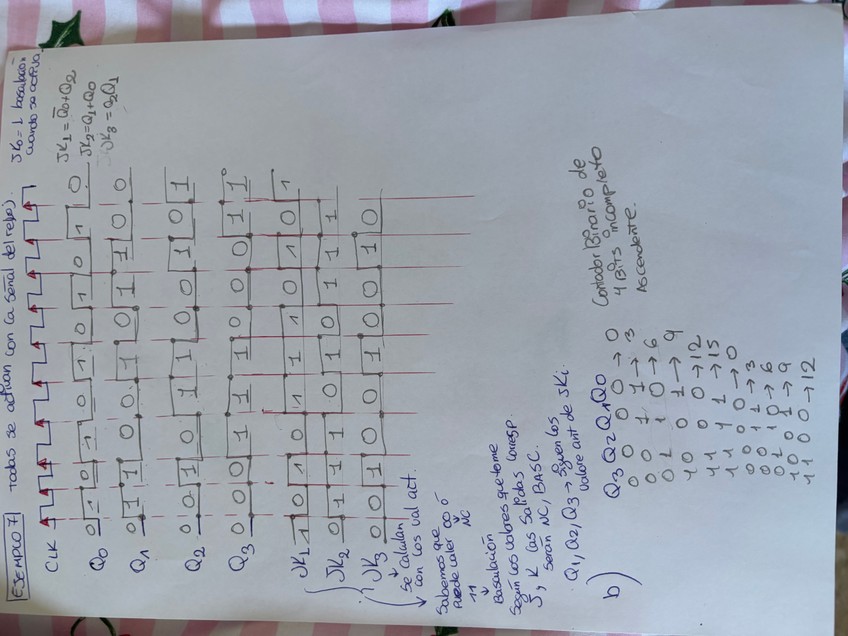 EJEMPLO 7 Todas se activan con la señal del reloj).
JK0 = 1 basculación
cuando se activa.
CLK
JK1 = Q̅0+Q2
JK2 = Q1+Q0
JK3 = Q2Q1
Q0 0 1 0 1 0 1 0 1 0 1 0
Q1 0 1 1 0 0 1 0 1 1 0 0
Q2 0 0 1 0 1 1 0 0 1 0 1
Q3 0 0 0 1 1 1 0 0 0 1 1
JK1 1 0 1 0 1 1 1 0 1 0 1
JK2 0 1 1 1 0 1 0 1 1 1
JK3 0 0 1 0 0 1 0 0 1 0
Se calculan
con los val act.
Sabemos que
puede valer 00 ó
11 NC
Basculación
Según los valores que tome
J, K las salidas corresp.
serán NC, BASC.
Q1, Q2, Q3 → siguen los
valore ant de JKi.
b)
Q3 Q2 Q1 Q0
0 0 0 0 → 0
0 0 1 1 → 3
0 1 1 0 → 6
1 0 0 1 → 9
1 1 0 0 → 12
1 1 1 1 → 15
0 0 0 0 → 0
0 0 1 1 → 3
0 1 1 0 → 6
1 0 0 1 → 9
1 1 0 0 → 12
Contador Binario de
4 Bits incompleto
Ascendente.